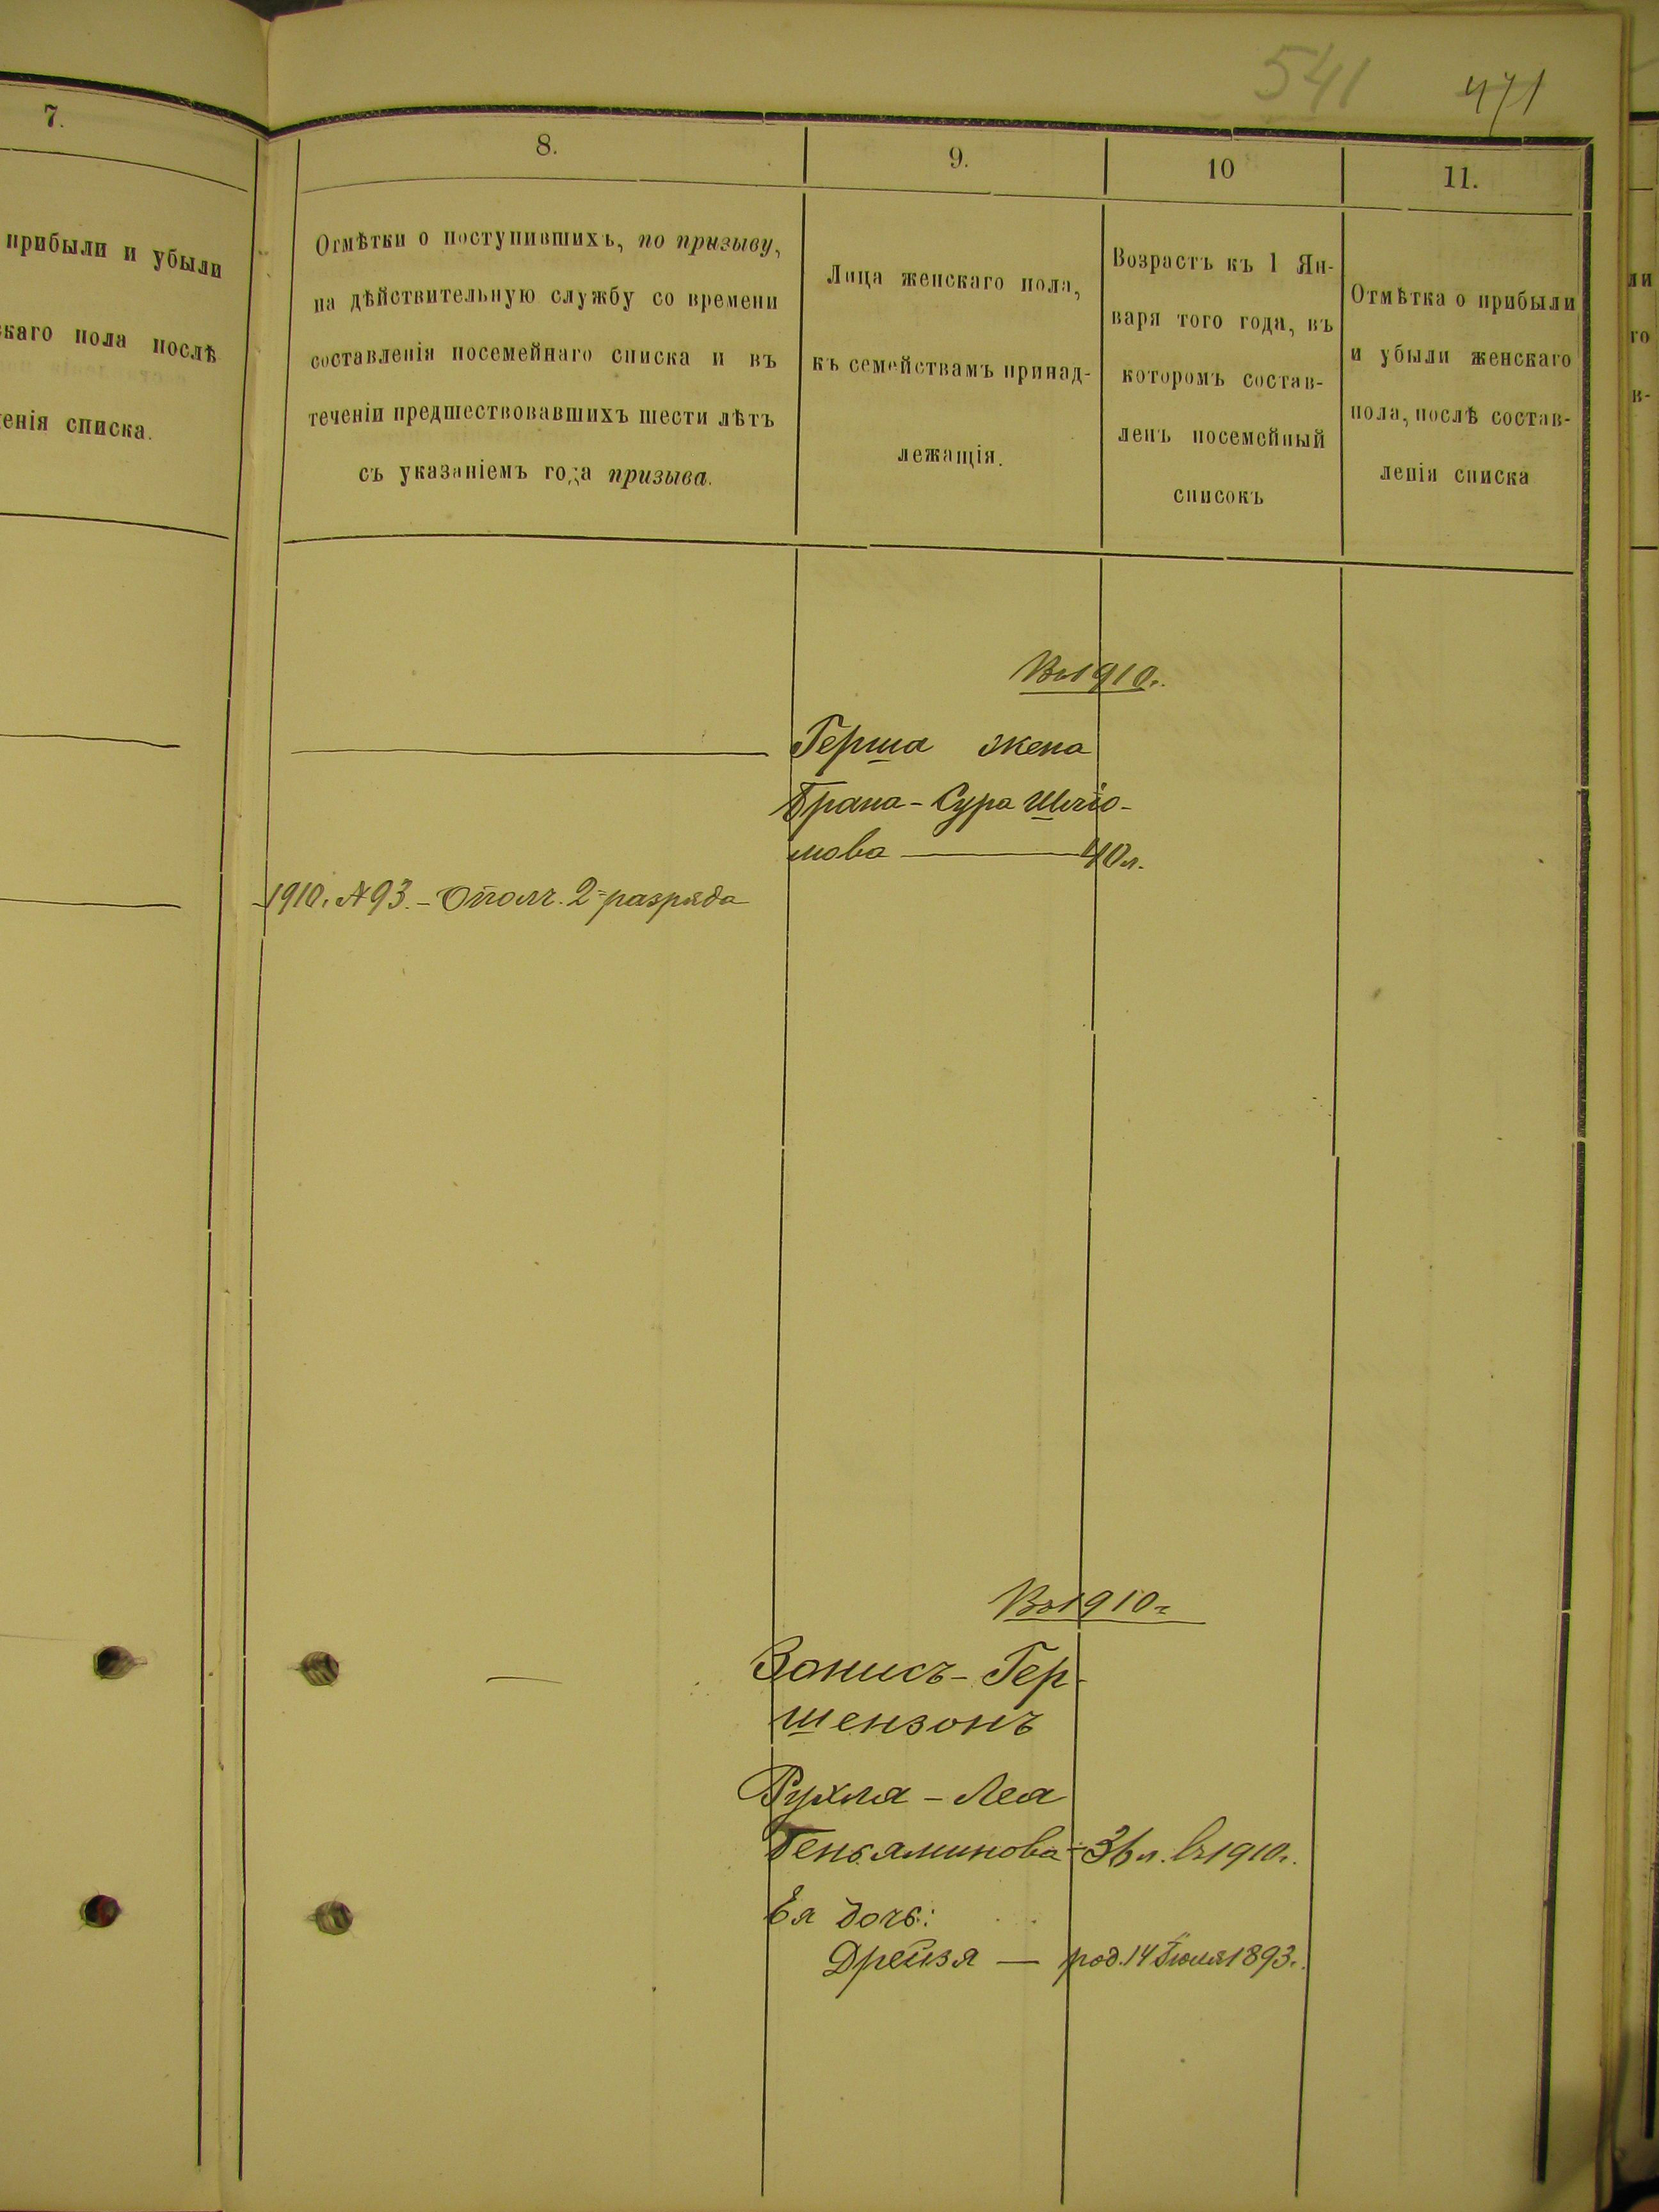 541 471
7.
8.
9.
10
11.
прибыли и убыли
скаго пола послѣ
ленія списка.
Отмѣтки о поступившихъ, по призыву,
на дѣйствительную службу со времени
составленія посемейнаго списка и въ
теченіи предшествовавшихъ шести лѣтъ
съ указаніемъ года призыва.
Лица женскаго пола,
къ семействамъ принад-
лежащія.
Возрастъ къ 1 Ян-
варя того года, въ
которомъ состав-
ленъ посемейный
списокъ
Отмѣтка о прибыли
и убыли женскаго
пола, послѣ состав-
ленія списка
Въ 1910г.
Герша жена
Брана-Сура Шліо-
мова — 40 л.
1910. №93. – Ополч. 2 разряда
Въ 1910г
Зонисъ-Гер-
шензонъ
Рухля-Леа
Беньяминова 36 л. въ 1910г.
Ея дочь:
Дрейзя — род. 14 Іюля 1893г.